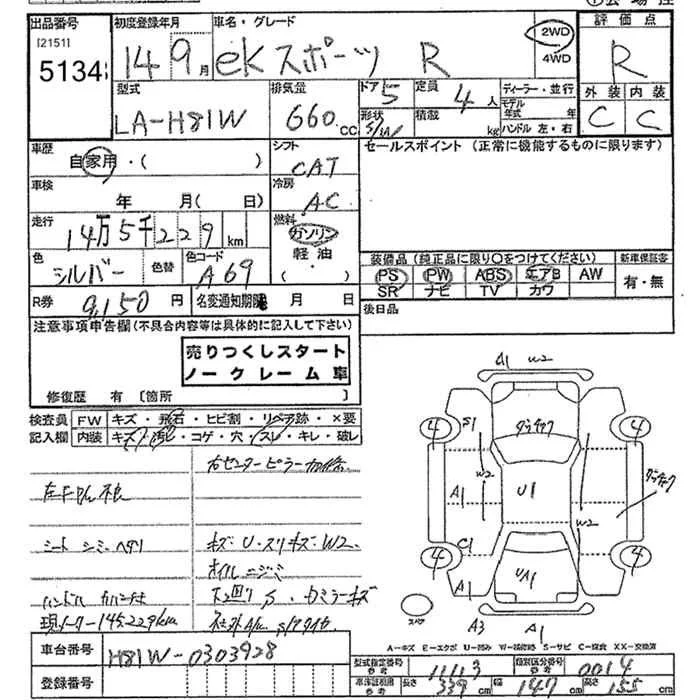 出品番号 初度登録年月 車名・グレード 評価点
[2151] 14 9月 eKスポーツ R 2WD 4WD R
5134
型式 排気量 ドア 定員 ディーラー・並行 外装 内装
LA-H81W 660cc 5 4人 モデル年式 年 C C
形状 S/W 積載 kg ハンドル 左・右
車歴 シフト セールスポイント (正常に機能するものに限ります)
自家用・( ) CAT
車検 冷房
年 月(日) AC
走行 燃料
14万5千229km ガソリン
色 色替 色コード 軽油・( )
シルバー A69
装備品 (純正品に限り○をつけてください) 新車保証書
PS PW ABS エアB AW 有・無
SR ナビ TV カワ
R券 9,150円 名変通知期限 月 日 後日品
注意事項申告欄(不具合内容等は具体的に記入して下さい)
売りつくしスタート
ノークレーム車
修復歴 有 [箇所 ]
検査員 FW キズ・飛石・ヒビ割・リペア跡・×要
記入欄 内装 キズ・汚レ・コゲ・穴・スレ・キレ・破レ
右センターピラー
シート シミ ヘタリ
キズ・U・スリキズ・W2
オイルニジミ
下回りS
現メーター145229km
A1 W2
4 S1 4
W2
A1 U1 W2
C1
4 4
A1 UA1
スペア
A3 A1
A=キズ E=エクボ U=凹み W=補修跡 S=サビ C=腐食 XX=交換済
車台番号 H81W-0303928
登録番号
型式指定番号 参考 11113 類別区分番号 参考 0014
車体証明 参考 長さ 339cm 幅 147cm 高さ 155cm